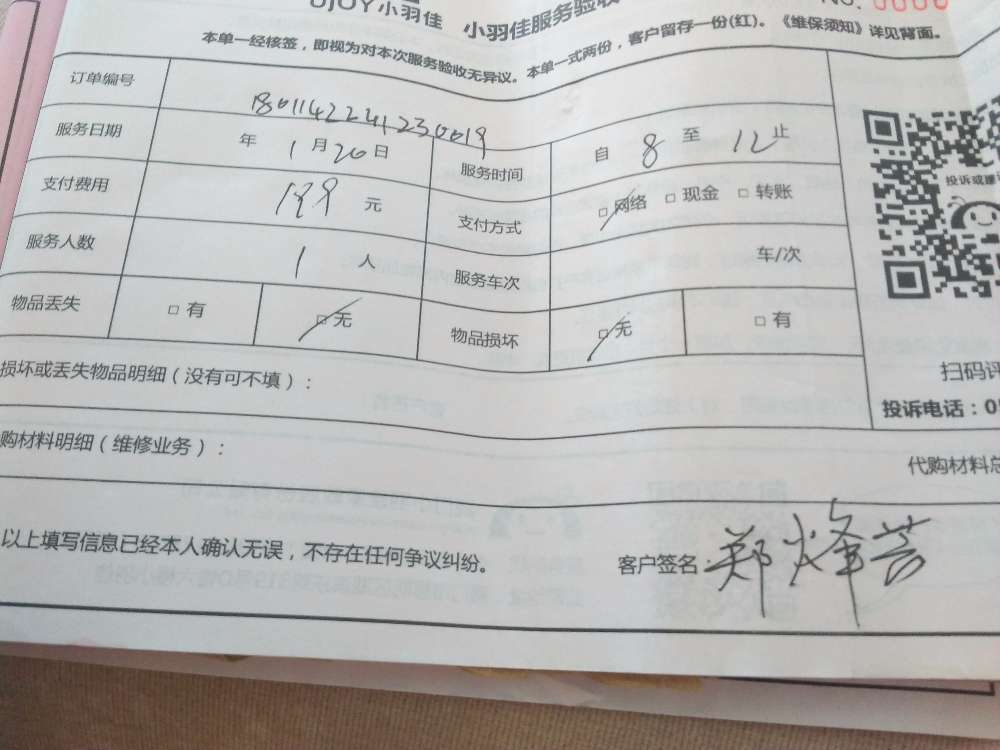 UJOY小羽佳 小羽佳服务验收
NO. 0000
本单一经核签，即视为对本次服务验收无异议。本单一式两份，客户留存一份(红)。《维保须知》详见背面。
订单编号 1801142241230019
服务日期 年 1 月 20 日 服务时间 自 8 至 12 止
支付费用 199 元 支付方式 □ 网络 □ 现金 □ 转账
服务人数 1 人 服务车次 车/次
物品丢失 □ 有 □ 无 物品损坏 □ 无 □ 有
损坏或丢失物品明细（没有可不填）：
购材料明细（维修业务）：
投诉或建议
扫码评
投诉电话：0
代购材料总
以上填写信息已经本人确认无误，不存在任何争议纠纷。 客户签名：郑烽芸